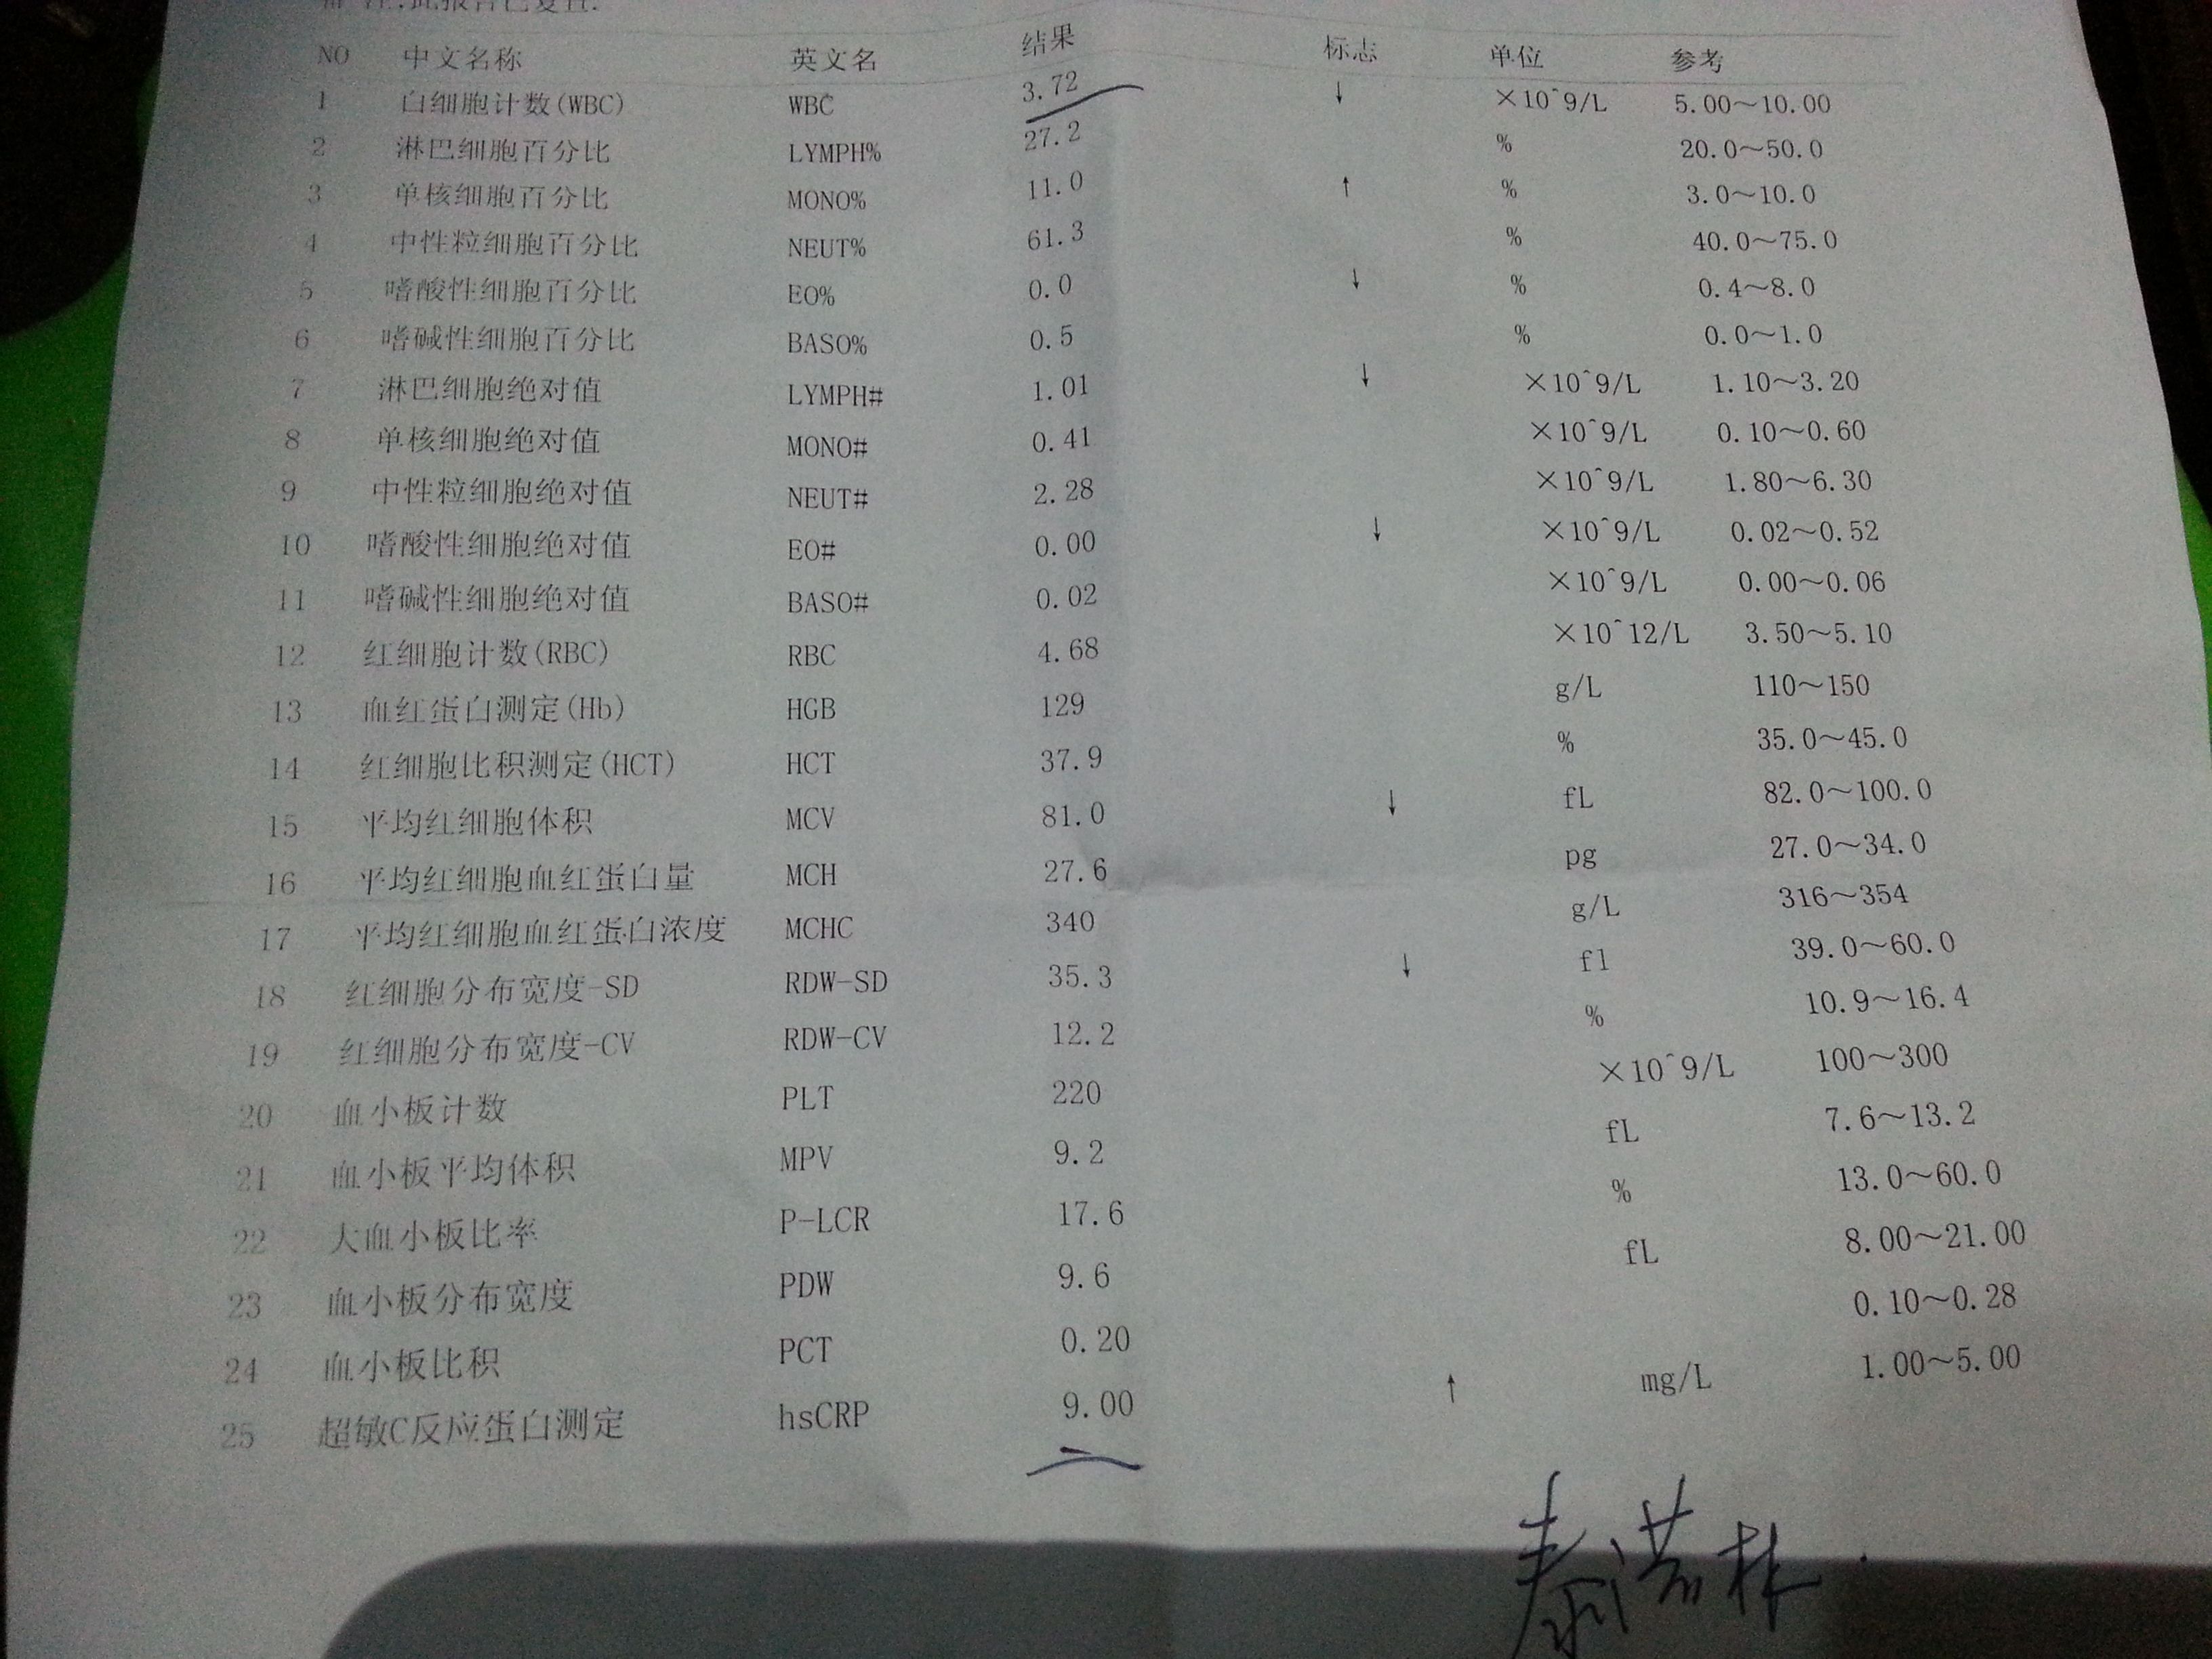 备 注:此报告已复查.
NO 中文名称 英文名 结果 标志 单位 参考
1 白细胞计数(WBC) WBC 3.72 ↓ ×10^9/L 5.00～10.00
2 淋巴细胞百分比 LYMPH% 27.2 % 20.0～50.0
3 单核细胞百分比 MONO% 11.0 ↑ % 3.0～10.0
4 中性粒细胞百分比 NEUT% 61.3 % 40.0～75.0
5 嗜酸性细胞百分比 EO% 0.0 ↓ % 0.4～8.0
6 嗜碱性细胞百分比 BASO% 0.5 % 0.0～1.0
7 淋巴细胞绝对值 LYMPH# 1.01 ↓ ×10^9/L 1.10～3.20
8 单核细胞绝对值 MONO# 0.41 ×10^9/L 0.10～0.60
9 中性粒细胞绝对值 NEUT# 2.28 ×10^9/L 1.80～6.30
10 嗜酸性细胞绝对值 EO# 0.00 ↓ ×10^9/L 0.02～0.52
11 嗜碱性细胞绝对值 BASO# 0.02 ×10^9/L 0.00～0.06
12 红细胞计数(RBC) RBC 4.68 ×10^12/L 3.50～5.10
13 血红蛋白测定(Hb) HGB 129 g/L 110～150
14 红细胞比积测定(HCT) HCT 37.9 % 35.0～45.0
15 平均红细胞体积 MCV 81.0 ↓ fL 82.0～100.0
16 平均红细胞血红蛋白量 MCH 27.6 pg 27.0～34.0
17 平均红细胞血红蛋白浓度 MCHC 340 g/L 316～354
18 红细胞分布宽度-SD RDW-SD 35.3 ↓ fl 39.0～60.0
19 红细胞分布宽度-CV RDW-CV 12.2 % 10.9～16.4
20 血小板计数 PLT 220 ×10^9/L 100～300
21 血小板平均体积 MPV 9.2 fL 7.6～13.2
22 大血小板比率 P-LCR 17.6 % 13.0～60.0
23 血小板分布宽度 PDW 9.6 fL 8.00～21.00
24 血小板比积 PCT 0.20 0.10～0.28
25 超敏C反应蛋白测定 hsCRP 9.00 ↑ mg/L 1.00～5.00
泰诺林